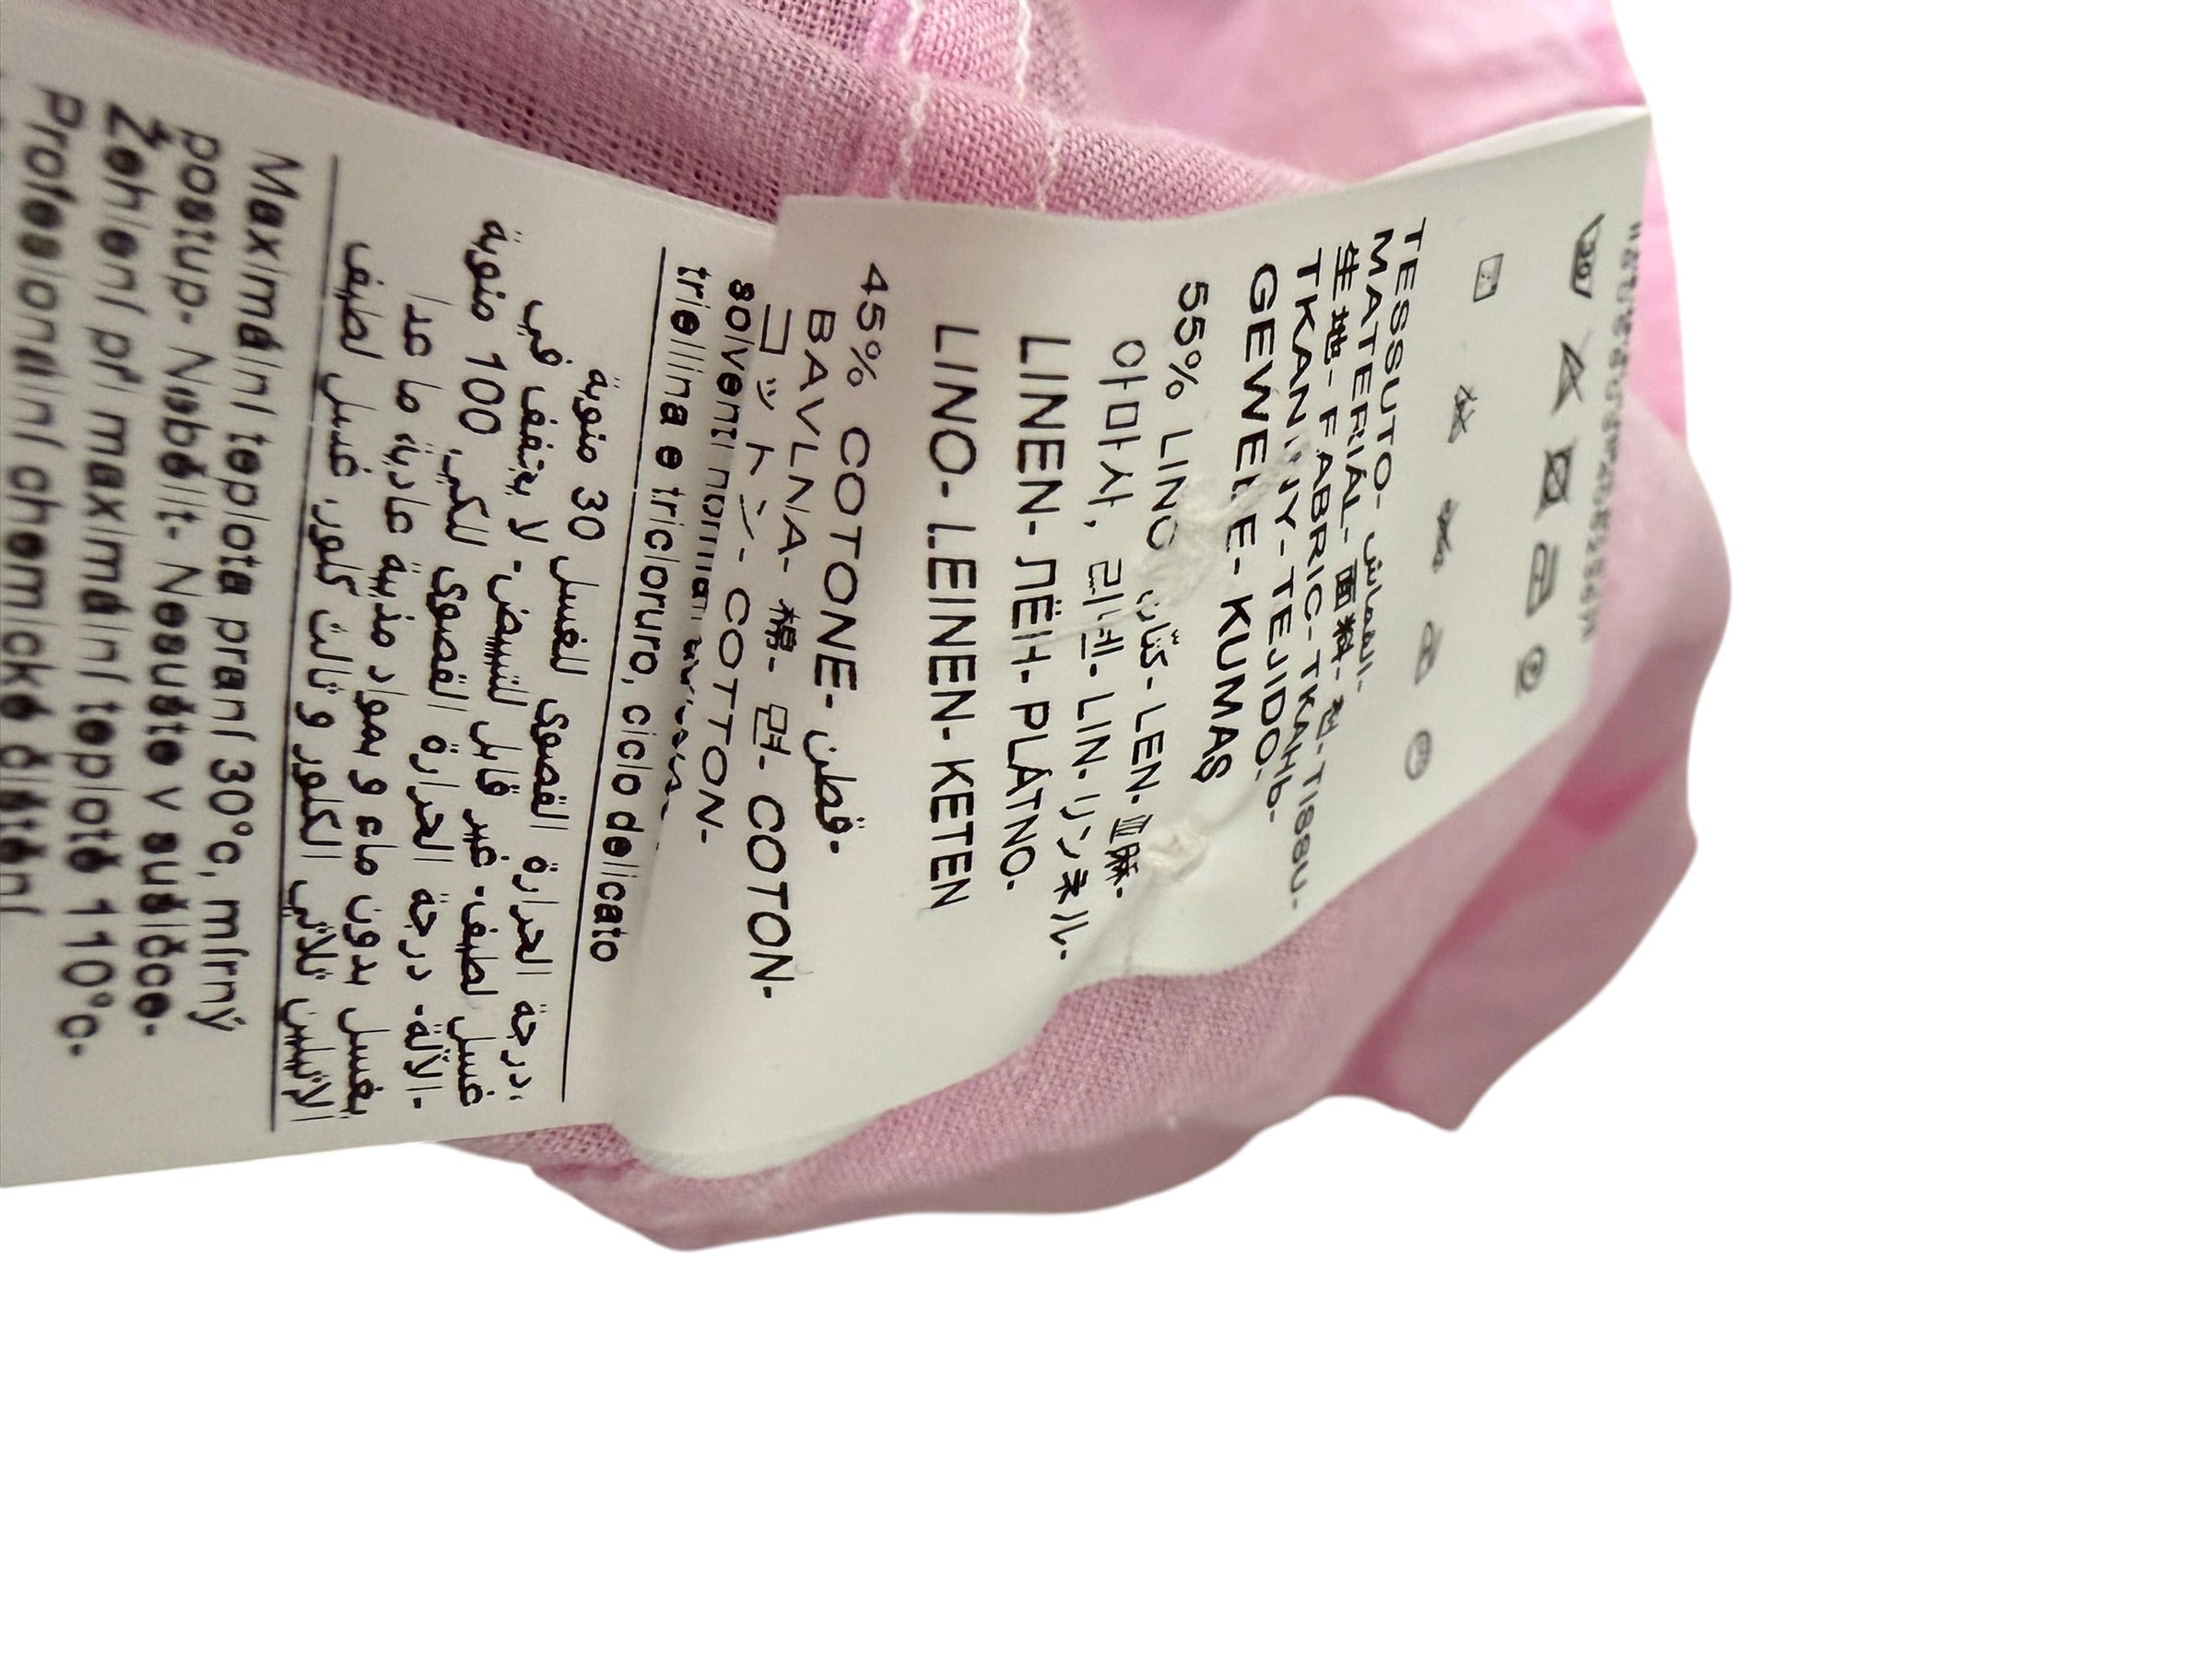 TESSUTO- القماش-
MATERIÁL- 面料- 천- TISSU-
生地- FABRIC- ТКАНЬ-
TKANINY- TEJIDO-
GEWEBE- KUMAŞ
55% LINO كتان- LEN- 亚麻-
아마사, 리넨- LIN- リンネル-
LINEN- ЛЁН- PLÁTNO-
LINO- LEINEN- KETEN
45% COTONE- قطن-
BAVLNA- 棉- 면- COTON-
コットン- COTTON-
solventi normali
trielina e tricloruro, ciclo delicato
درجة الحرارة القصوى للغسل 30 مئوية،
غسل لطيف- غير قابل للتبييض- لا يجفف في
الآلة- درجة الحرارة القصوى للكي، 100 مئوية
يغسل بدون ماء و بمواد مذيبة عادية ما عدا
الإثيلين ثلاثي الكلور و ثالث كلور، غسل لطيف
Maximální teplota praní 30°c, mírný
postup- Nebělit- Nesušte v sušičce-
Žehlení při maximální teplotě 110°c-
Profesionální chemické čištění